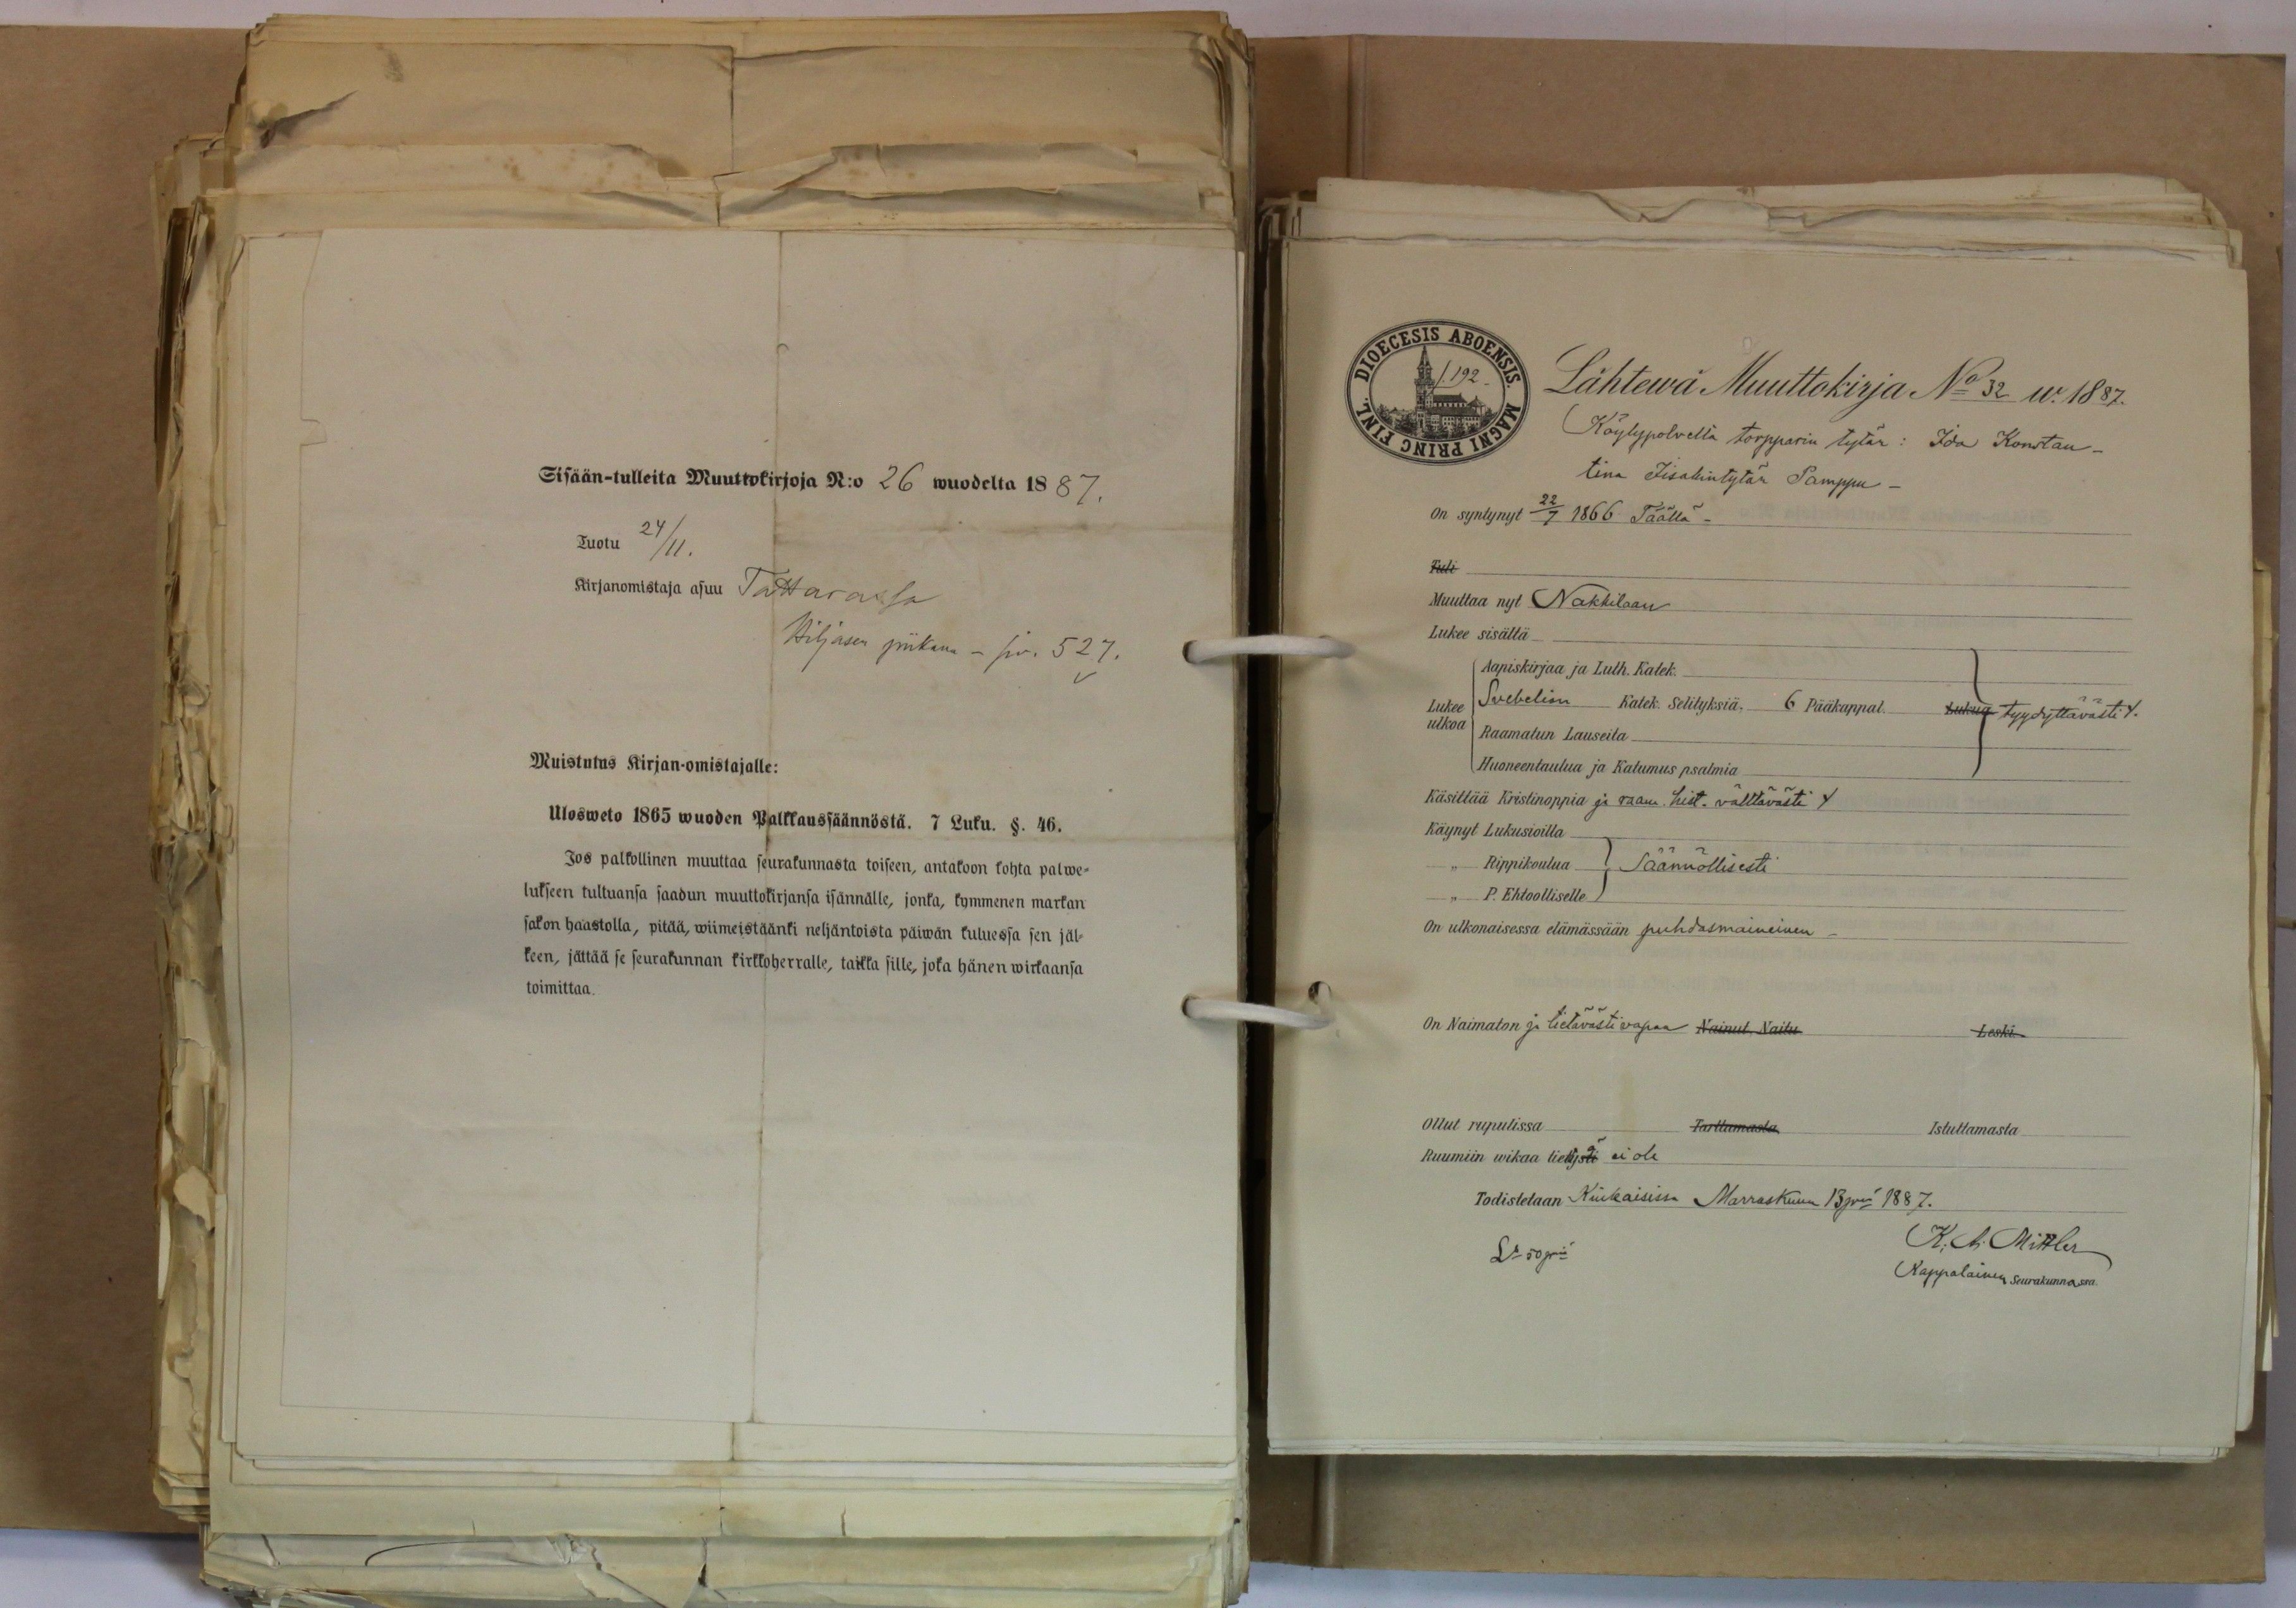 Sisään-tulleita Muuttokirjoja N:o 26 wuodelta 1887.
Tuotu 24/11.
Kirjanomistaja asuu Tattarassa
Hiljasen piikana - siv. 527.
Muistutus Kirjan-omistajalle:
Ulosweto 1865 wuoden Palkkaussäännöstä. 7 Luku. §. 46.
Jos palkollinen muuttaa seurakunnasta toiseen, antakoon kohta palwe-
lukseen tultuansa saadun muuttokirjansa isännälle, jonka, kymmenen markan
sakon haastolla, pitää, wiimeistäänki neljäntoista päiwän kuluessa sen jäl-
keen, jättää se seurakunnan kirkkoherralle, taikka sille, joka hänen wirkaansa
toimittaa.
DIOECESIS ABOENSIS. MAGNI PRINC FINL.
s. 192
Lähtewä Muuttokirja No 32 w. 1887.
Köylypolvelta torpparin tytär: Ida Konstan-
tina Iisakintytär Samppu -
On syntynyt 22/7 1866 Täällä -
Tuli
Muuttaa nyt Nakkilaan
Lukee sisältä
Aapiskirjaa ja Luth. Katek.
Lukee ulkoa Svebelion Katek. Selityksiä. 6 Pääkappal. Lukua tyydyttävästi
Raamatun Lauseita
Huoneentaulua ja Katumus psalmia
Käsittää Kristinoppia ja raam. hist. välttävästi
Käynyt Lukusioilla
„ Rippikoulua Säännöllisesti
„ P. Ehtoolliselle
On ulkonaisessa elämässään puhdasmaineinen -
On Naimaton ja tietävästi vapaa Nainut Naitu Leski
Ollut rupulissa Tarttumasta Istuttamasta
Ruumiin wikaa tiettysti ei ole
Todistetaan Kiukaisissa Marraskuun 13 pnä 1887.
K. A. Mittler
Kappalainen Seurakunnassa.